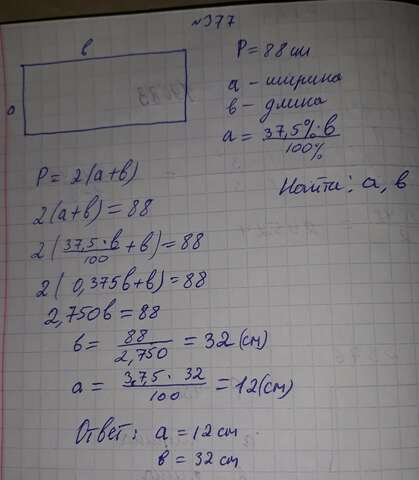 №377
в
P = 88 см
a
a – ширина
в – длина
a = 37,5%·в / 100%
P = 2(a+в)
Найти: a, в
2(a+в) = 88
2(37,5·в / 100 + в) = 88
2(0,375в+в) = 88
2,750в = 88
в = 88 / 2,750 = 32 (см)
a = 37,5 · 32 / 100 = 12 (см)
Ответ: a = 12 см
в = 32 см